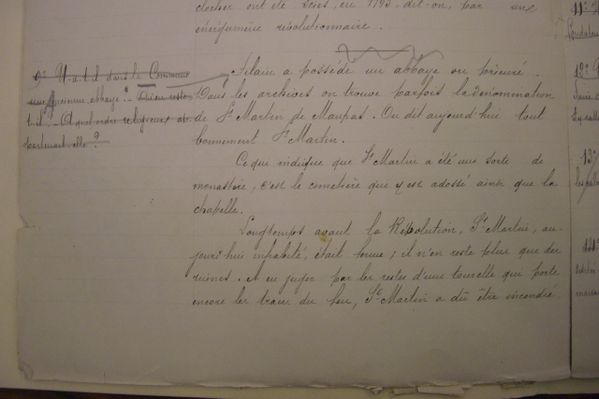 clocher ont été sciés, en 1793, dit-on, par un
énergumène révolutionnaire.
9° Y a-t-il dans la Commune
une ancienne abbaye ? En reste
t-il A quel ordre religieux ap-
partenait-elle ?
Silain a possédé un abbaye ou prieuré.
Dans les archives on trouve parfois la dénomination
de St Martin de Maupas. On dit aujourd'hui tout
bonnement St Martin.
Ce qui indique que St Martin a été une sorte de
monastère, c'est le cimetière qui y est adossé ainsi que la
chapelle.
Longtemps avant la Révolution, St Martin, au-
jourd'hui inhabité, était ferme ; il n'en reste plus que des
ruines. A en juger par les restes d'une tourelle qui porte
encore les traces du feu, St Martin a dû être incendié.
11°
12°
13°
14°